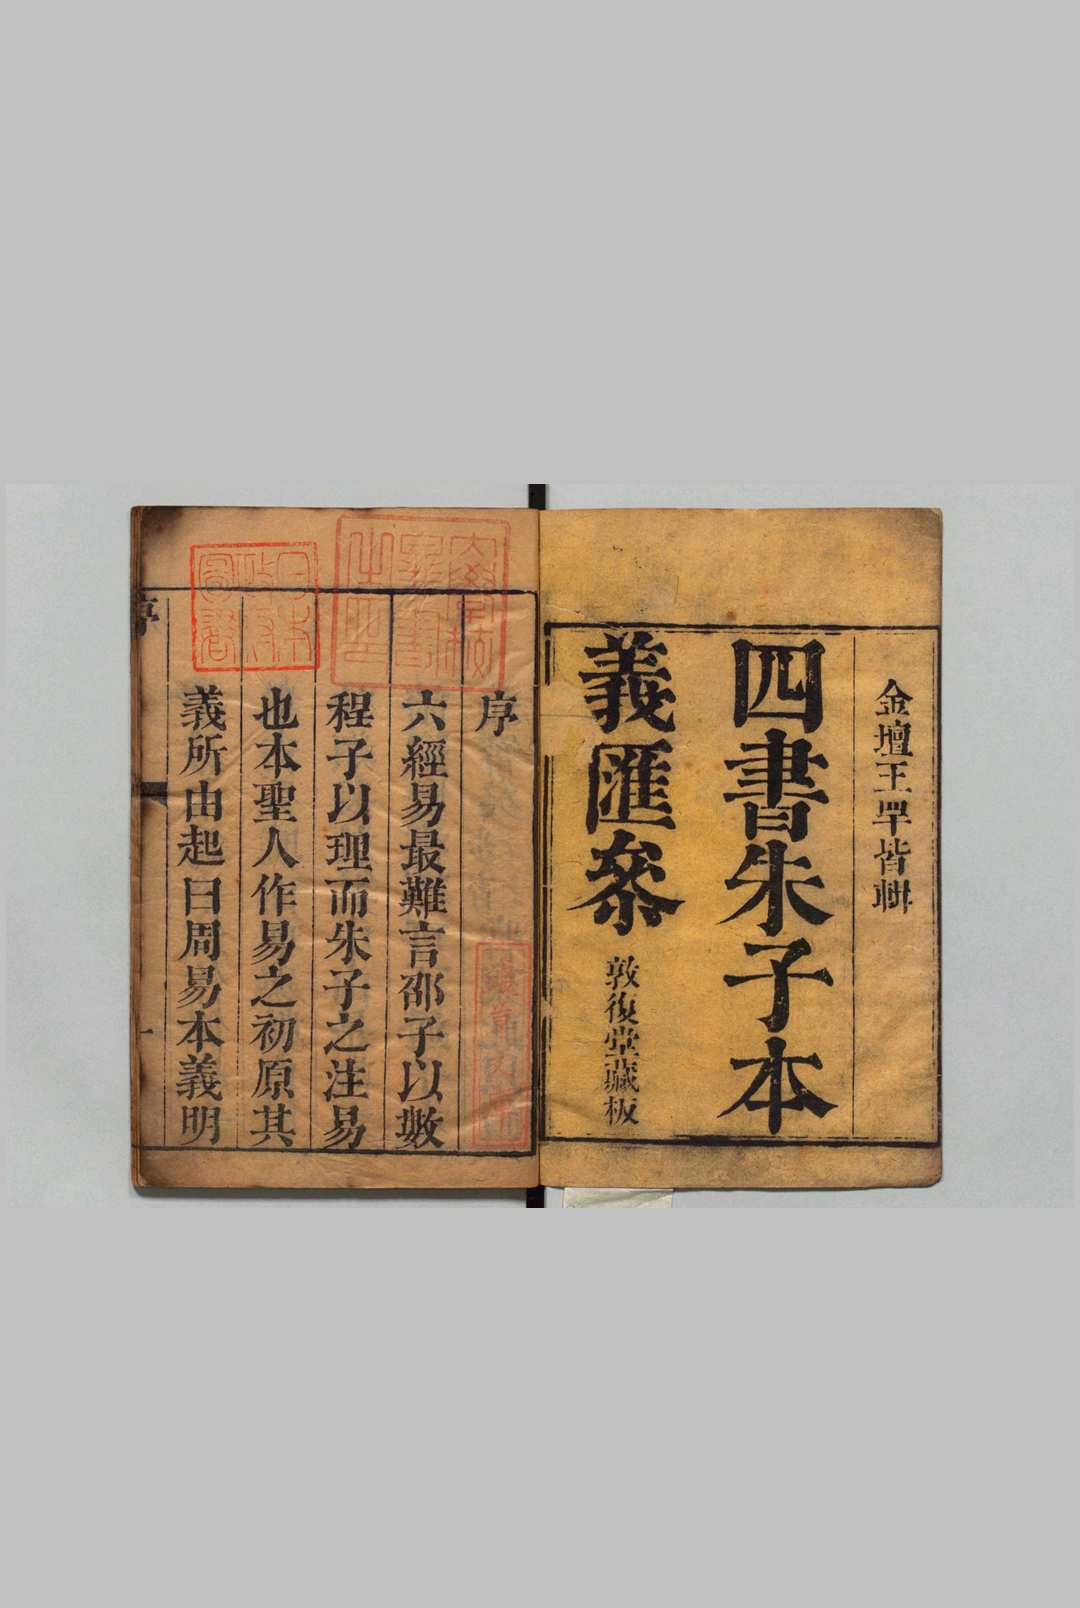 金壇王罕皆輯
四書朱子本
義匯叅
敦復堂藏板
序
六經易最難言邵子以數
程子以理而朱子之注易
也本聖人作易之初原其
義所由起曰周易本義明
序
一
日本
政府
圖書